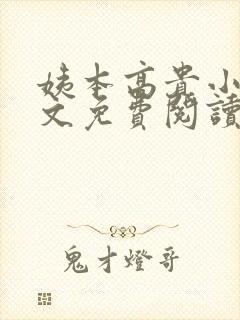 姨本高貴小
文免費閱讀
鬼才燈哥